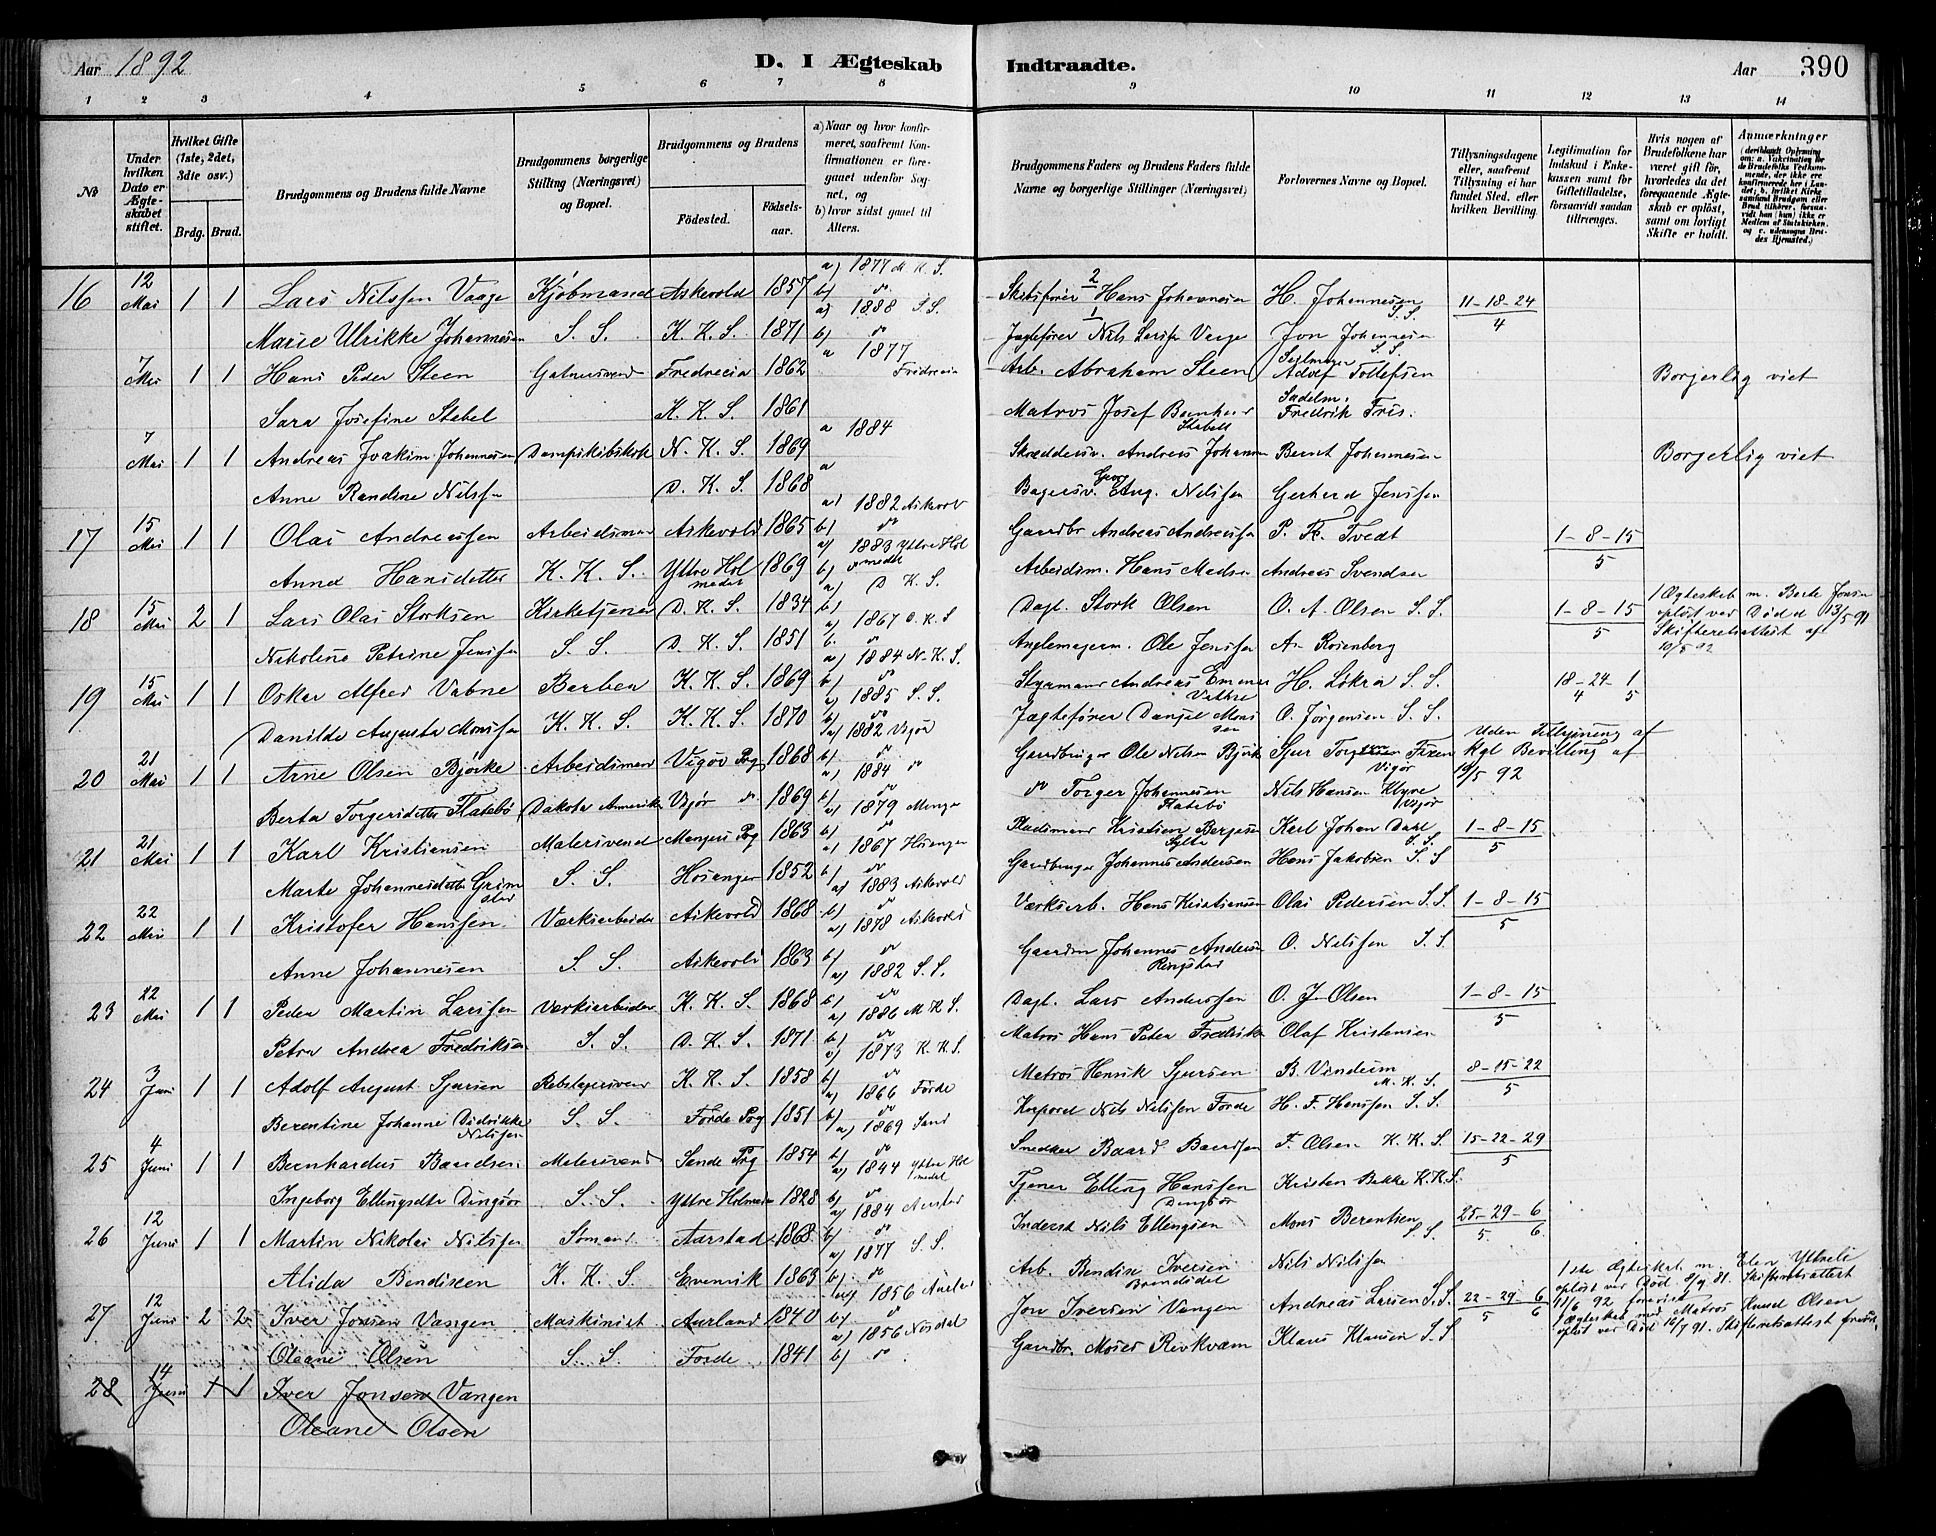 Aar 1892 D. I Ægteskab Indtraadte. Aar 390
1 2 3 4 5 6 7 8 9 10 11 12 13 14
No
Under hvilken Dato er Ægteskabet stiftet.
Hvilket Gifte (1ste, 2det, 3die osv.)
Brdg. Brud.
Brudgommens og Brudens fulde Navne
Brudgommens borgerlige Stilling (Næringsvei) og Bopæl.
Brudgommens og Brudens
Fødested. Fødselsaar.
a) Naar og hvor konfirmeret, saafremt Konfirmationen er foregaaet udenfor Sognet, og
b) hvor sidst gaaet til Alters.
Brudgommens Faders og Brudens Faders fulde Navne og borgerlige Stillinger (Næringsvei)
Forlovernes Navne og Bopæl.
Tillysningsdagene eller, saafremt Tillysning ei har fundet Sted, efter hvilken Bevilling.
Legitimation for Indskud i Enkekassen samt for Giftetilladelse, forsaavidt saadan tiltrænges.
Hvis nogen af Brudefolkene har været gift før, hvorledes da det foregaaende Ægteskab er opløst, samt om lovligt Skifte er holdt.
Anmærkninger
16 12 Mai 1 1 Lars Nilssen Vaage Kjøbmand Askevold 1857 a) 1877 M. K. S. b) do Skibsfører 2 Hans Johannesen H. Johannesen S. S. 11-18-24 4
Marie Ulrikke Johannesen S. S. K. K. S. 1871 a) 1888 S. S. b) do Jægtefører 1 Nils Larssen Vaage Jon Johannesen S. S.
7 Mai 1 1 Hans Peder Steen Fredrecia 1862 a 1877 Fridrecia Arb. Abraham Steen Adolf Tollefsen Borgerlig viet
Sara Josefine Stabel K. K. S. 1861 Matros Josef Stabell Sadelm. Fredrik Fris.
7 Mai 1 1 Andreas Joakim Johannesen N. K. S. 1869 a 1884 Andreas Johannesen Bernt Johannesen Borgerlig viet
Anne Randine Nilssen D. K. S. 1868 a Georg Aug. Nilssen Gerhard Jenssen
17 15 Mai 1 1 Olai Andreassen Arbeidsmand Askevold 1865 a) 1882 Askevold b) do Gaardbr Andreas Andreassen P. Fr. Tvedt 1-8-15 5
Anna Hansdatter K. K. S. Yttre Holmedal 1869 a) 1883 Yttre Holmedal b) do Arbeidsm. Hans Madsen Andreas Svendsen
18 15 Mai 2 1 Lars Olai Storksen Kirketjener D. K. S. 1834 a) D K. S. b) Dagl. Stork Olsen O. A. Olsen S. S. 1-8-15 5 1 Ægteskab m. Berte Jonsen opløst ved Død d 13/5 91 Skifteretsattest af 10/5 92
Nikoline Petrine Jenssen S. S. D. K. S. 1851 a) 1867 D. K. S b. do Ole Jenssen A. Rosenberg
19 15 Mai 1 1 Oskar Alfred Vabne Barber K. K. S. 1869 a) 1884 N. K. S. b) do Styrmand Andreas H. Lökra S. S. 18-24-1 4 5
Danilda Augusta Monssen K. K. S. K. K. S. 1870 a) 1885 S. S. b) do Jægtefører Danjel Monssen O. Jørgensen S. S.
20 21 Mai 1 1 Arne Olsen Bjørke Arbeidsmand Vigør Prg 1868 a) 1882 Vigør b) do Gaardbruger Ole Nilsen Bjørke Sjur Fixen Vigør Uden Tillysning af Kgl Bevilling af 10/5 92
Berta Torgersdatter Flatebø Dakota Amerika Vigør do 1869 a) 1884 do b) do do Torger Johannesen Flatebø Nils Hansen Klyve Vigør
21 21 Mai 1 1 Karl Kristiansen Malersvend Mangers Prg 1863 a) 1879 Manger b) do Pladsmand Kristian Karl Johan Dahl S. S. 1-8-15 5
Marte Johannesdatter Grimstad S. S. Hosanger 1852 a) 1867 Hosanger b) do Gaardbruger Johannes Andersen Hans Jakobsen S. S
22 22 Mai 1 1 Kristofer Hanssen Værksarbeider Askevold 1868 a) 1883 Askevold b) do Værksarb. Hans Kristiansen Olai Pedersen S. S. 1-8-15 5
Anne Johannesen S. S. Askevold 1863 a) 1878 Askevold b) do Gaardm Johannes Andersen Ringstad O. Nilssen S. S.
23 22 Mai 1 1 Peder Martin Larssen Værksarbeider K. K. S. 1868 a) 1882 S. S. b) do Dagl. Lars Anderssen O. J. Olsen 1-8-15 5
Petra Andrea Fredriksen S. S. D. K. S. 1871 a) 1886 M K S. b) do Matros Hans Peter Fredriksen Olaf Kristensen
24 3 Juni 1 1 Adolf August Sjursen Rebslagersvend K. K. S. 1858 a) 1873 K. K. S. b) do Matros Henrik Sjursen B. Vindum M. K. S. 8-15-22 5
Berentine Johanne Didrikke Nilssen S. S. Førde Prg 1851 a) 1866 Førde b) do Korporal Nils Nilssen Førde H. F. Hanssen S. S.
25 4 Juni 1 1 Bernhardus Baardsen Malersvend Sande Prg 1854 a) 1869 Sand b) do Snedker Baard Baardsen F. Olsen K. K. S. 15-22-29 5
Ingeborg Ellingsdtr Dingsør S. S. Yttre Holmedal 1828 a) 1844 Yttre Holmedal b) do Tjener Elling Hanssen Dingsør Kristen Bakke K. K. S.
26 12 Juni 1 1 Martin Nikolai Nilssen Sømand Aarstad 1868 a) 1884 b) do Inderst Nils Ellingsen Mons Berentsen S. S. 25-29-6 5 6
Alida Bendixen K. K. S. Evenvik 1863 a) 1877 S. S. b) do Arb. Bendix Iversen Brendsdal Nils Nilssen
27 12 Juni 2 2 Iver Jonsen Vangen Maskinist Aurland 1840 a) 1856 b) do Jon Iversen Vangen Andreas Larsen S. S. 22-29-6 5 6 1ste Ægteskab m. Elen opløst ved Død 8/9 81. Skifteretsattest 11/6 92 forevist
Oleane Olsen S. S. Førde 1841 a) 1856 b) do Gaardbr. Moses Klaus Klausen S. S 1 Ægteskab med Matros Knud Olsen opløst ved Død 16/7 91. Skifteretsattest
28 14 Juni 1 1 Iver Jonsen Vangen
Oleane Olsen